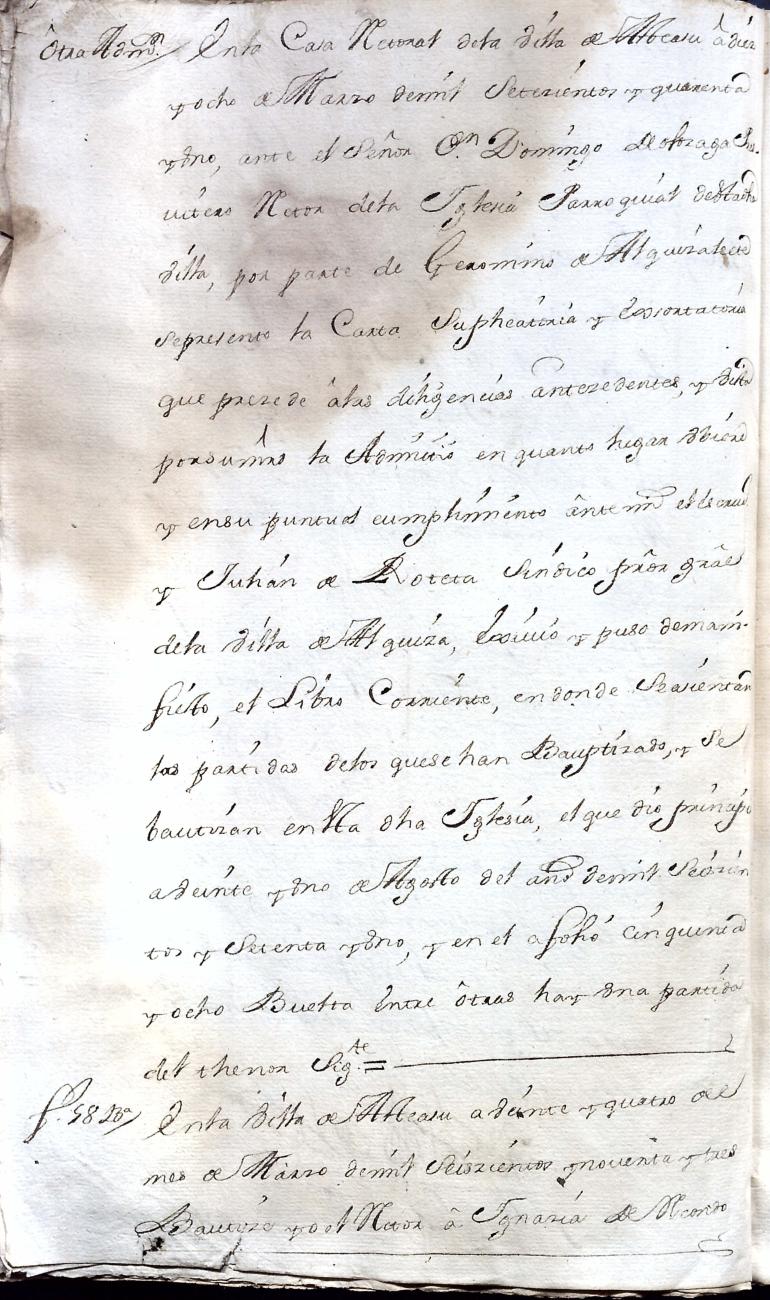 Otra Admon. En la Casa Rectoral dela Villa de Albeasu â diez
y ocho de Marzo demil Setecientos y quarenta
y Vno, ante el Señor Dn. Domingo de olozaga Pres-
vitero Retor dela Yglesia Parroquial de esta dha
Villa, por parte de Geronimo de Alquizalete
sepresento la Carta Suplicatoria y Exsortatoria
que prezede âlas diligencias antezedentes, y Vista
porsumrd la Admitio en quanto hugar dviere
y ensu puntual cumplimiento ânte mi el escrivo
y Julian de Roteta Sindico prôr grâl
dela Villa de Alquiza, Exivio y puso demani-
fiesto, el Libro Corriente, en donde Seasientan
las partidas delos quese han Bauptizado, y Se
bautizan en Esta dha Yglesia, el que dio principio
a veinte y Vno de Agosto del año demil Seiscien
tos y Setenta y Vno, y en el afolio Cinquenta
y ocho Buelta Entre ôtras hay Vna partida
del thenor Sigte. =
f. 58 Ba En la Villa de Albeasu a veinte y quatro del
mes de Marzo demil Seiszientos ynoventa y tres
Bautize yo el Retor â Ygnazia de Recondo